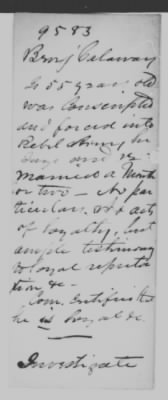 9583
Benj Calaway
Is 55 years old
was conscripted
and forced into
Rebel Army in
and re
mained a Month
or two — No par
ticulars. or acts
of loyalty, but
ample testimony
to loyal reputa
tion &c.
Com. Certifies that
he is Loyal &c.
Investigate